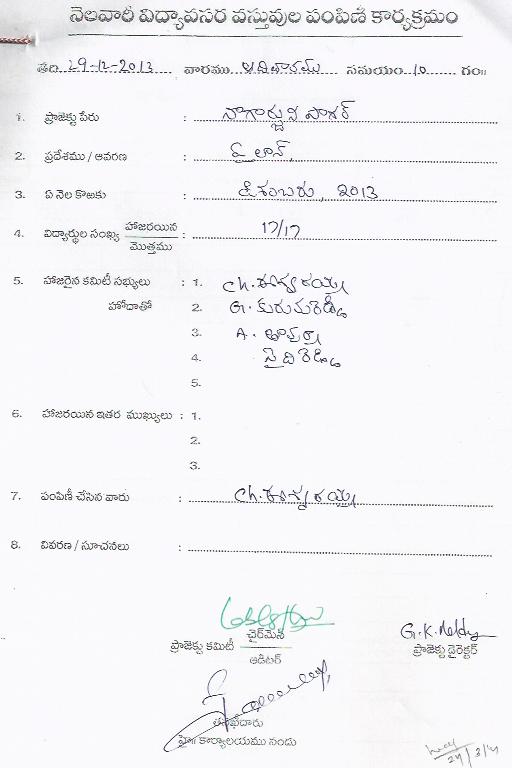 నెలవారీ విద్యావసర వస్తువుల పంపిణీ కార్యక్రమం
తేది 29-12-2013 వారము ఆదివారము సమయం 10 గం॥
1. ప్రాజెక్టు పేరు : నాగార్జున సాగర్
2. ప్రదేశము / ఆవరణ :
3. ఏ నెల కొఱకు : డిశంబరు, 2013
4. విద్యార్థుల సంఖ్య హాజరయిన / మొత్తము : 17/17
5. హాజరైన కమిటీ సభ్యులు : 1. Ch.
హోదాతో 2. G.
3. A.
4. సైదిరెడ్డి
5.
6. హాజరయిన ఇతర ముఖ్యులు : 1.
2.
3.
7. పంపిణీ చేసిన వారు : Ch.
8. వివరణ / సూచనలు :
ప్రాజెక్టు కమిటీ చైర్‌మెన్ / ఆడిటర్
G.K. Reddy
ప్రాజెక్టు డైరెక్టర్
కార్యాలయము నందు